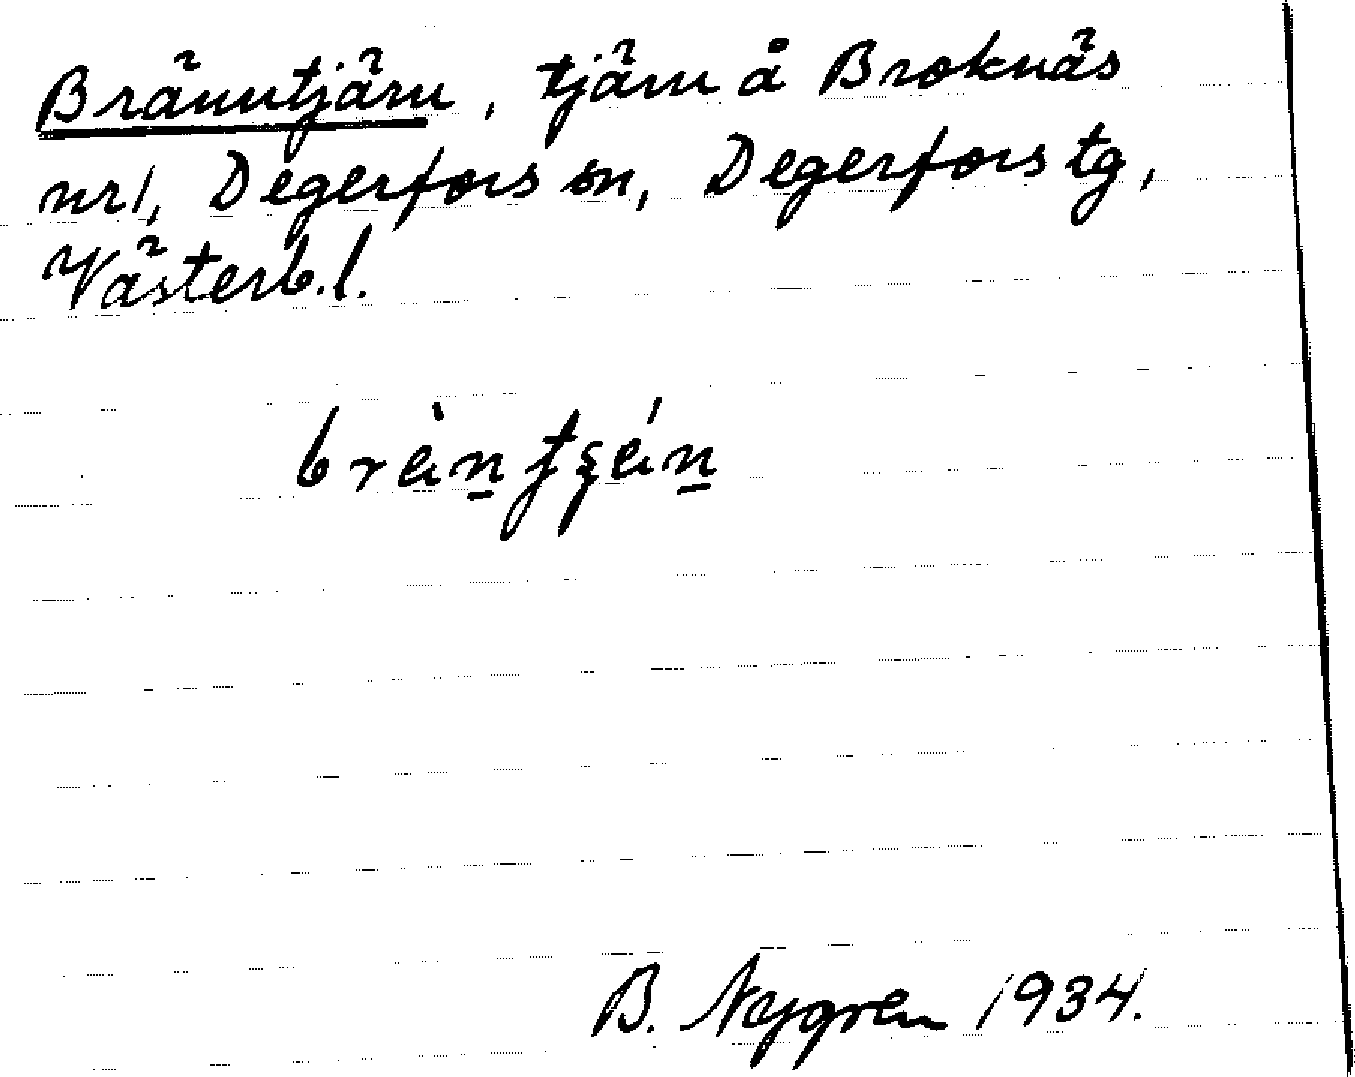 Bränntjärn, tjärn å Broknäs
nr 1, Degerfors sn, Degerfors tg,
Västerb. l.
B. Nygren 1934.